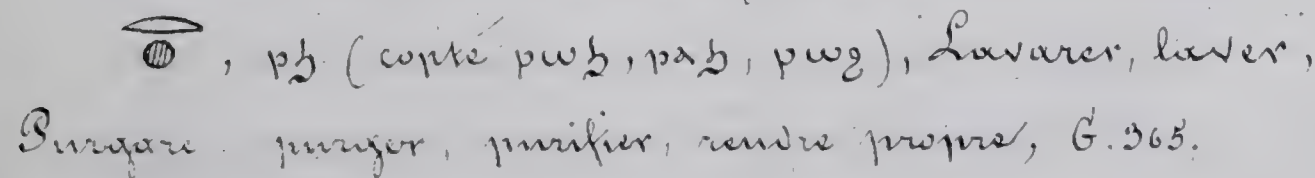 𓂋𓐍, ⲣϧ (copte ⲣⲱϧ, ⲣⲁϧ, ⲣⲱϩ), Lavarer, laver,
Purgare purger, purifier, rendre propre, G. 365.